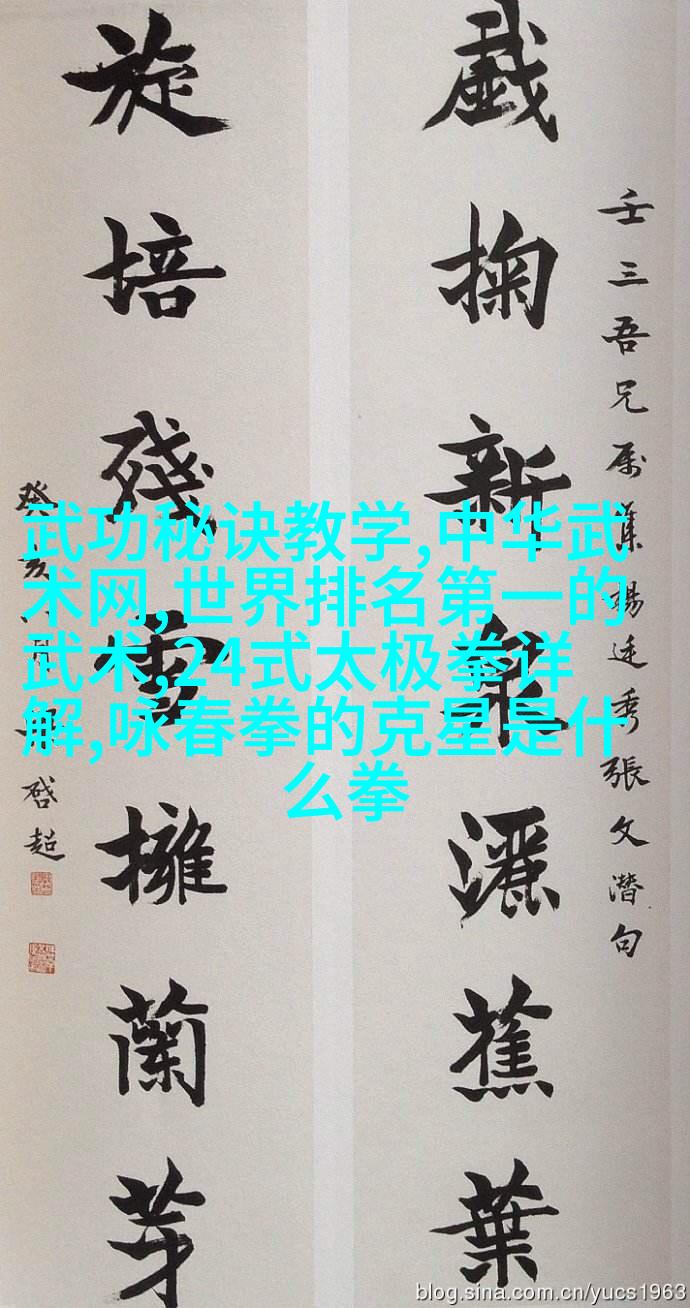 壬三吾兄属集楊廷秀張文潛句
戲掬新泉灑蕉葉
旋培殘雪擁蘭芽
癸亥 啓超
武功秘诀教学,中华武
术网,世界排名第一的
武术,24式太极拳详
解,咏春拳的克星是什
么拳
blog.sina.com.cn/yucs1963